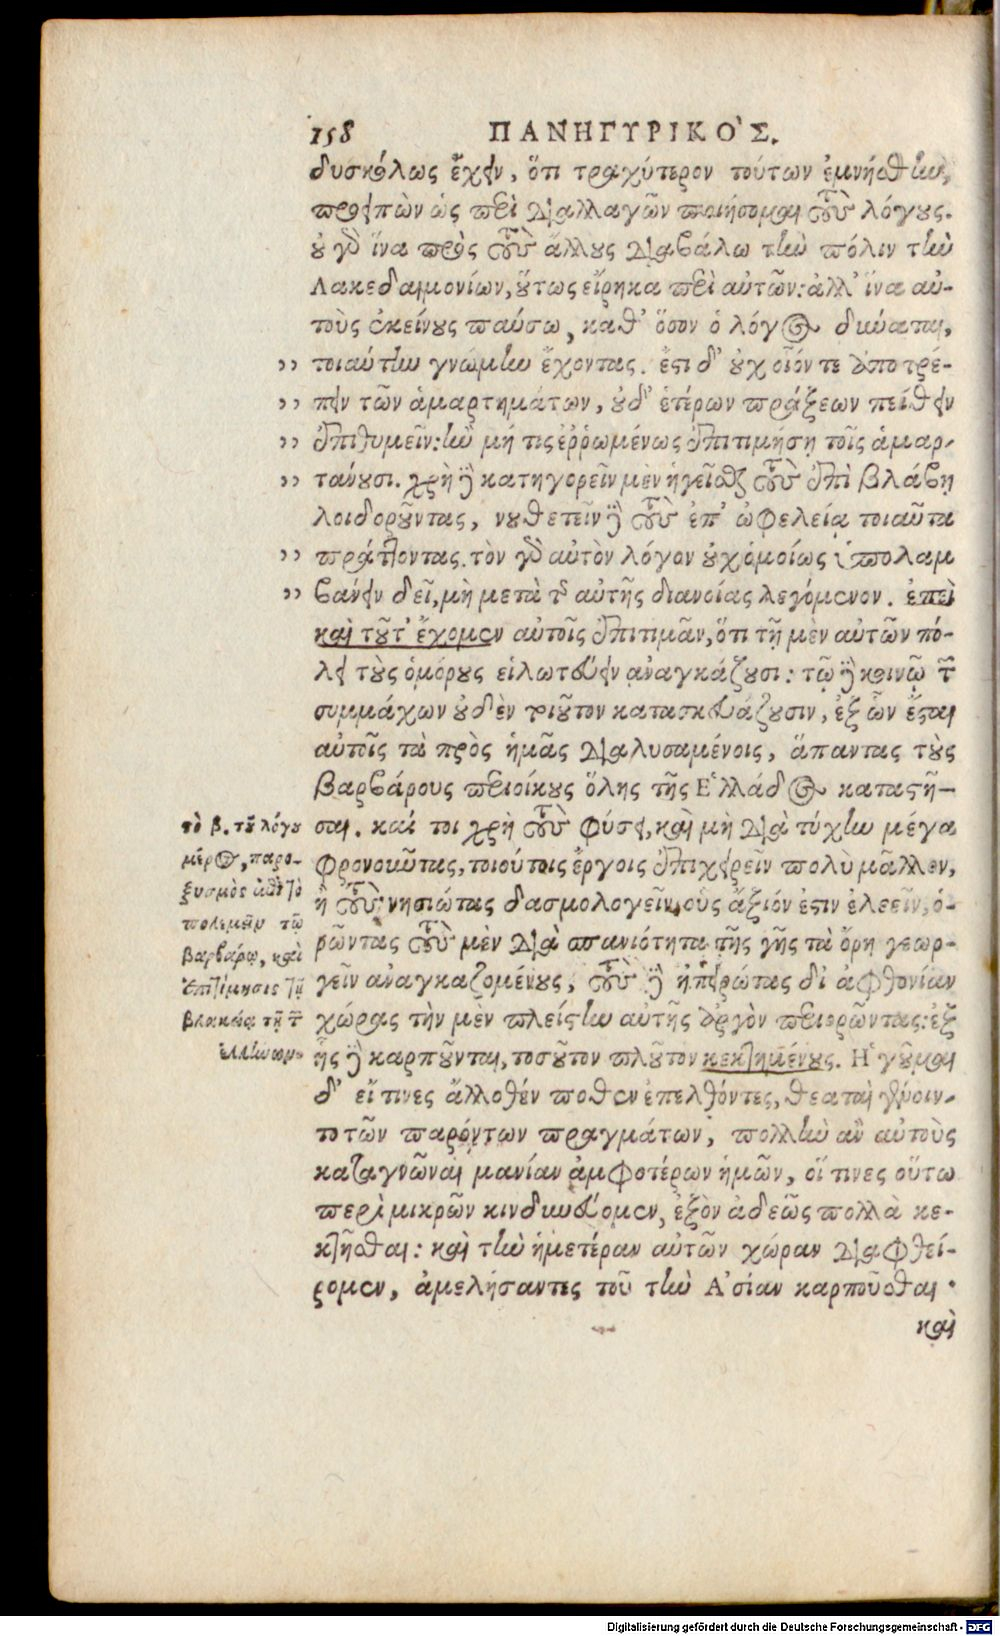 158 ΠΑΝΗΓΥΡΙΚΟ'Σ.
δυσκόλως ἔχειν, ὅτι τραχύτερον τούτων ἐμνήσθην,
προειπὼν ὡς περὶ διαλλαγῶν ποιήσομαι τοὺς λόγους.
οὐ γὰρ ἵνα πρὸς τοὺς ἄλλους διαβάλω τὴν πόλιν τὴν
Λακεδαιμονίων, οὕτως εἴρηκα περὶ αὐτῶν: ἀλλ' ἵνα αὐ-
τοὺς ἐκείνους παύσω, καθ' ὅσον ὁ λόγος δύναται,
,, τοιαύτην γνώμην ἔχοντας. ἔστι δ' οὐχ οἷόν τε ἀποτρέ-
,, πειν τῶν ἁμαρτημάτων, οὐδ' ἑτέρων πράξεων πείθειν
,, ἐπιθυμεῖν: ἢν μή τις ἐῤῥωμένως ἐπιτιμήσῃ τοῖς ἁμαρ-
,, τάνουσι. χρὴ δὲ κατηγορεῖν μὲν ἡγεῖσθαι τοὺς ἐπὶ βλάβῃ
λοιδοροῦντας, νουθετεῖν δὲ τοὺς ἐπ' ὠφελείᾳ τοιαῦτα
,, πράττοντας. τὸν γὰρ αὐτὸν λόγον οὐχ ὁμοίως ὑπολαμ
,, βάνειν δεῖ, μὴ μετὰ τῆς αὐτῆς διανοίας λεγόμενον. ἐπεὶ
καὶ τοῦτ' ἔχομεν αὐτοῖς ἐπιτιμᾶν, ὅτι τῇ μὲν αὐτῶν πό-
λει τοὺς ὁμόρους εἱλωτεύειν ἀναγκάζουσι: τῷ δὲ κοινῷ τῶν
συμμάχων οὐδὲν τοιοῦτον κατασκευάζουσιν, ἐξ ὧν ἔσται
αὐτοῖς τὰ πρὸς ἡμᾶς διαλυσαμένοις, ἅπαντας τοὺς
βαρβάρους περιοίκους ὅλης τῆς Ἑλλάδος καταστῆ-
σαι. καί τοι χρὴ τοὺς φύσει, καὶ μὴ διὰ τύχην μέγα
φρονοῦντας, τοιούτοις ἔργοις ἐπιχειρεῖν πολὺ μᾶλλον,
ἢ τοὺς νησιώτας δασμολογεῖν, οὓς ἄξιόν ἐστιν ἐλεεῖν, ὁ-
ρῶντας τοὺς μὲν διὰ σπανιότητα τῆς γῆς τὰ ὄρη γεωρ-
γεῖν ἀναγκαζομένους, τοὺς δὲ ἠπειρώτας δι' ἀφθονίαν
χώρας τὴν μὲν πλείστην αὐτῆς ἀργὸν περιορῶντας: ἐξ
ἧς δὲ καρποῦνται, τοσοῦτον πλοῦτον κεκτημένους. Ἡγοῦμαι
δ' εἴ τινες ἄλλοθέν ποθεν ἐπελθόντες, θεαταὶ γένοιν-
το τῶν παρόντων πραγμάτων, πολλὴν ἂν αὐτοὺς
καταγνῶναι μανίαν ἀμφοτέρων ἡμῶν, οἵ τινες οὕτω
περὶ μικρῶν κινδυνεύομεν, ἐξὸν ἀδεῶς πολλὰ κε-
κτῆσθαι: καὶ τὴν ἡμετέραν αὐτῶν χώραν διαφθεί-
ρομεν, ἀμελήσαντες τοῦ τὴν Ἀσίαν καρποῦσθαι.
καὶ
τὸ β. τοῦ λόγου
μέρος, παρο-
ξυσμὸς
πολεμεῖν τῷ
βαρβάρῳ, καὶ
ἐπιτίμησις τῇ
βλακείᾳ τῇ τῶν
ἑλλήνων
Digitalisierung gefördert durch die Deutsche Forschungsgemeinschaft - DFG